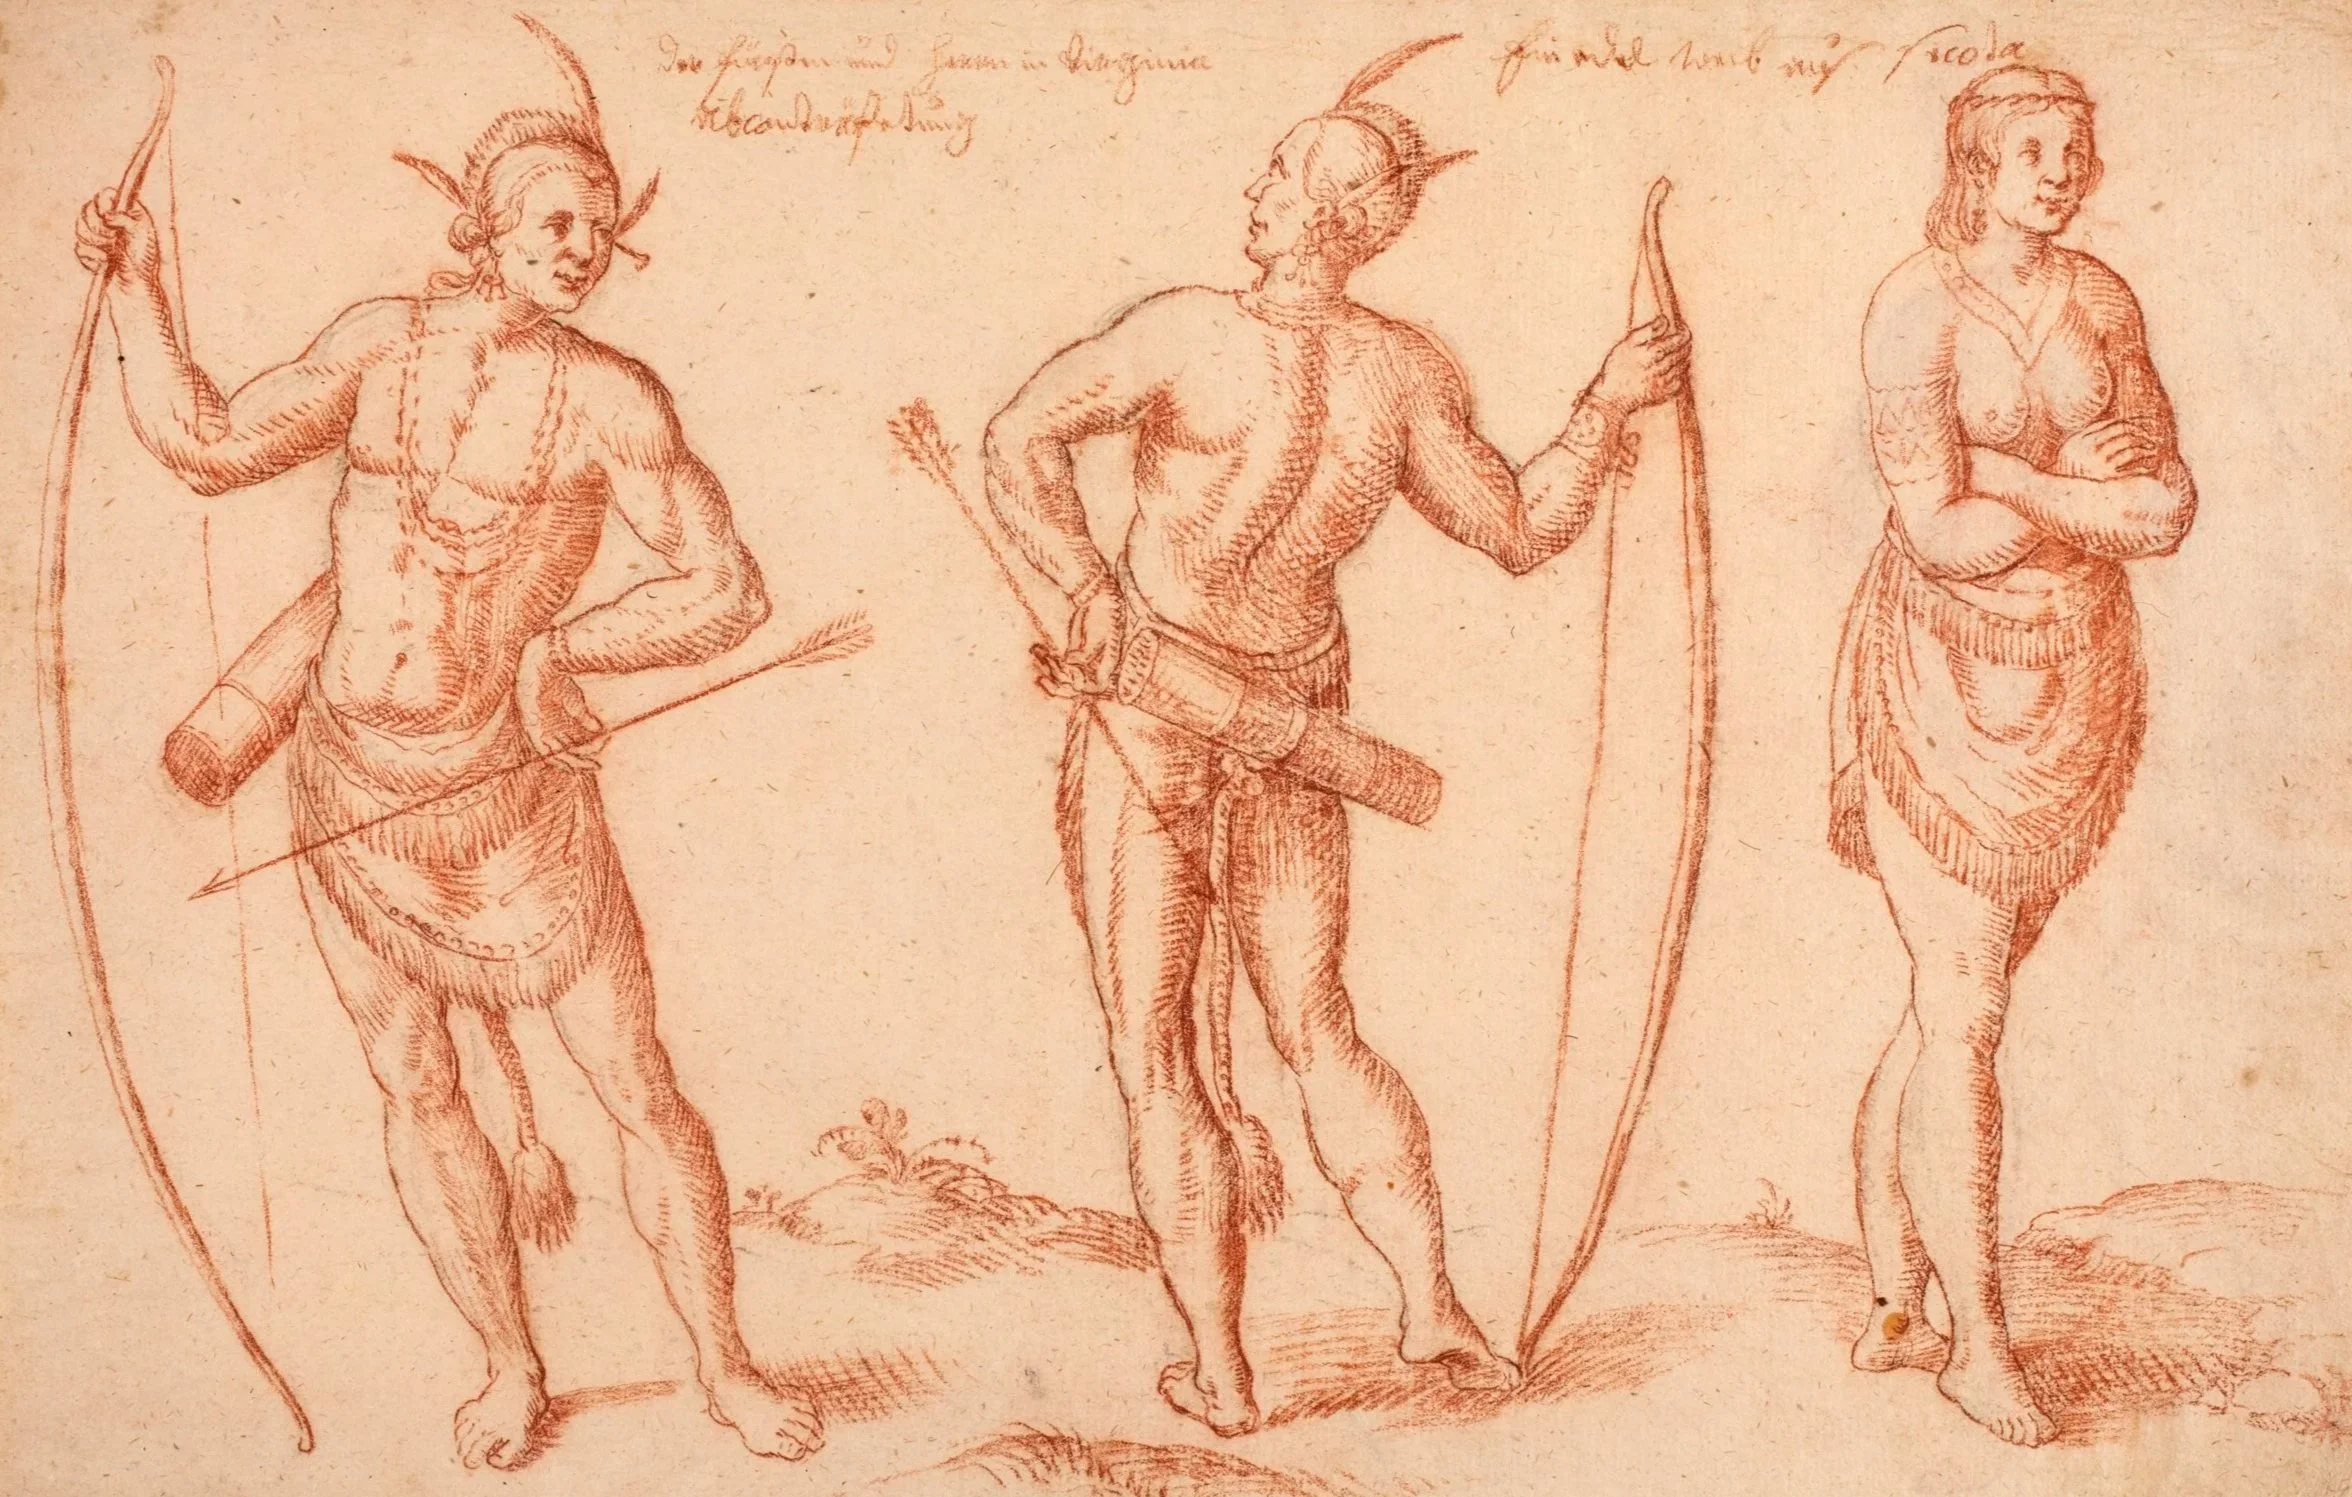 Der Fürsten und Herrn in Virginia
Abconterfetung
Ein edel weib aus Secota